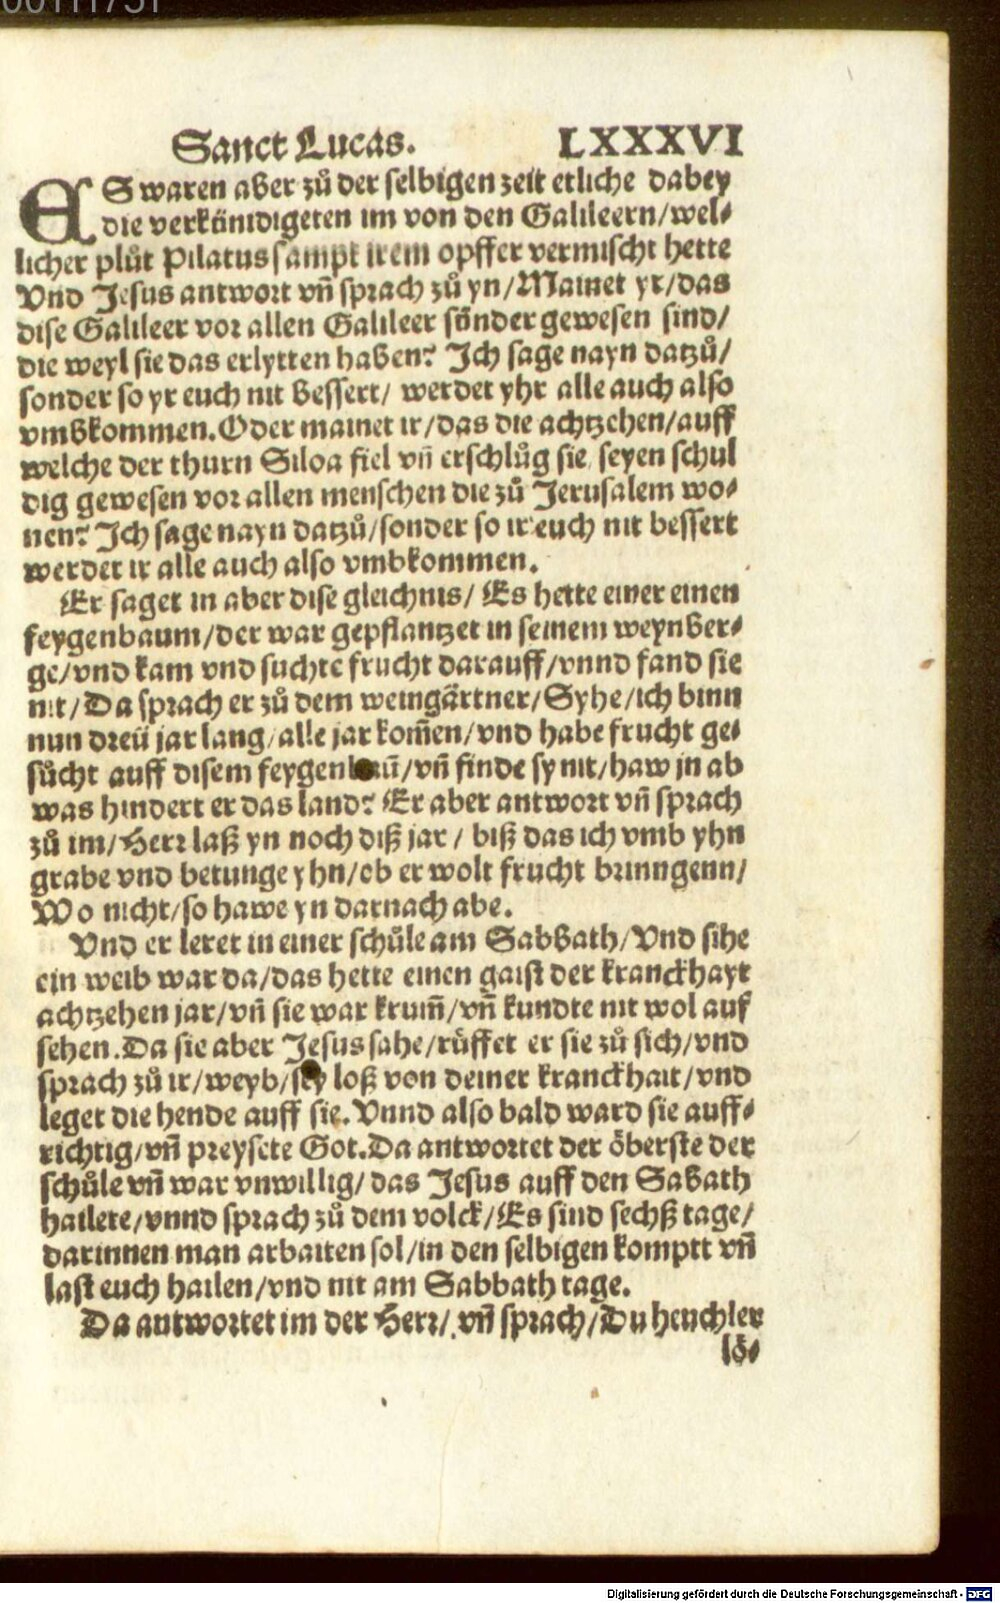 00111731
Sanct Lucas. LXXXVI
ES waren aber zů der selbigen zeit etliche dabey
die verkündigeten im von den Galileern/wel⸗
licher plůt Pilatus sampt irem opffer vermischt hette
Vnd Jesus antwort vñ sprach zů yn/Mainet yr/das
dise Galileer vor allen Galileer sönder gewesen sind/
die weyl sie das erlytten haben? Ich sage nayn datzů/
sonder so yr euch nit bessert/ werdet yhr alle auch also
vmbkommen.Oder mainet ir/das die achtzehen/auff
welche der thurn Siloa fiel vñ erschlůg sie seyen schul
dig gewesen vor allen menschen die zů Jerusalem wo⸗
nen? Ich sage nayn datzů/sonder so ir euch nit bessert
werdet ir alle auch also vmbkommen.
Er saget in aber dise gleichnis/ Es hette einer einen
feygenbaum/der war gepflantzet in seinem weynber⸗
ge/vnd kam vnd suchte frucht darauff/vnnd fand sie
nit/Da sprach er zů dem weingärtner/Syhe/ich binn
nun dreü jar lang/alle jar kom̃en/vnd habe frucht ge⸗
sůcht auff disem feygenbaũ/vñ finde sy nit/haw jn ab
was hindert er das land? Er aber antwort vñ sprach
zů im/Herr laß yn noch diß jar/ biß das ich vmb yhn
grabe vnd betunge yhn/ob er wolt frucht brinngenn/
Wo nicht/so hawe yn darnach abe.
Vnd er leret in einer schůle am Sabbath/Vnd sihe
ein weib war da/das hette einen gaist der kranckhayt
achtzehen jar/vñ sie war krum̃/vñ kundte nit wol auf
sehen.Da sie aber Jesus sahe/rüffet er sie zů sich/vnd
sprach zů ir/weyb/sey loß von deiner kranckhait/vnd
leget die hende auff sie.Vnnd also bald ward sie auff⸗
richtig/vñ preysete Got.Da antwortet der öberste der
schůle vñ war vnwillig/das Jesus auff den Sabath
hailete/vnnd sprach zů dem volck/Es sind sechß tage/
darinnen man arbaiten sol/in den selbigen komptt vñ
last euch hailen/vnd nit am Sabbath tage.
Da antwortet im der Herr/vñ sprach/Du heuchler
lö⸗
Digitalisierung gefördert durch die Deutsche Forschungsgemeinschaft - DFG